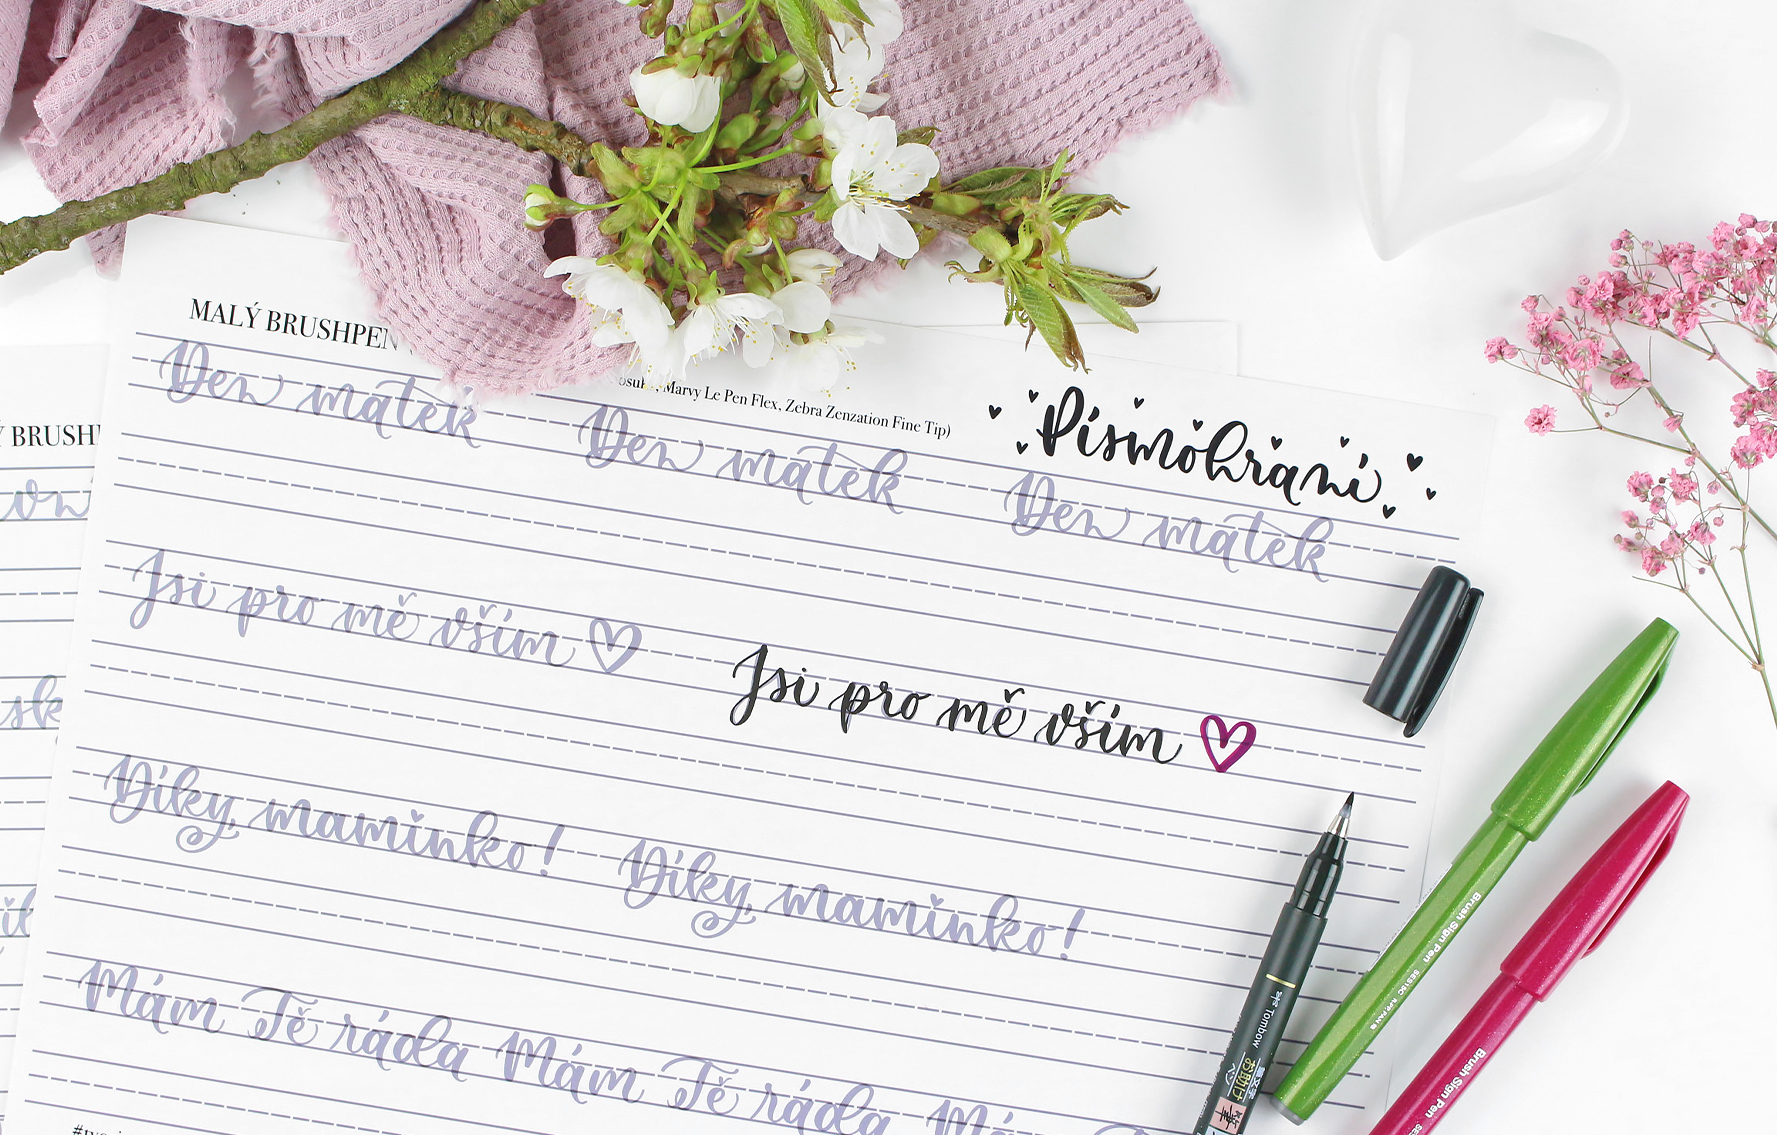 MALÝ BRUSHPEN
Marvy Le Pen Flex, Zebra Zenzation Fine Tip)
Písmohraní
Den matek Den matek Den matek
Jsi pro mě vším ♡ Jsi pro mě vším ♡
Díky, maminko! Díky, maminko!
Mám Tě ráda Mám Tě ráda
Tombow
Brush Sign Pen SES15C
Brush Sign Pen